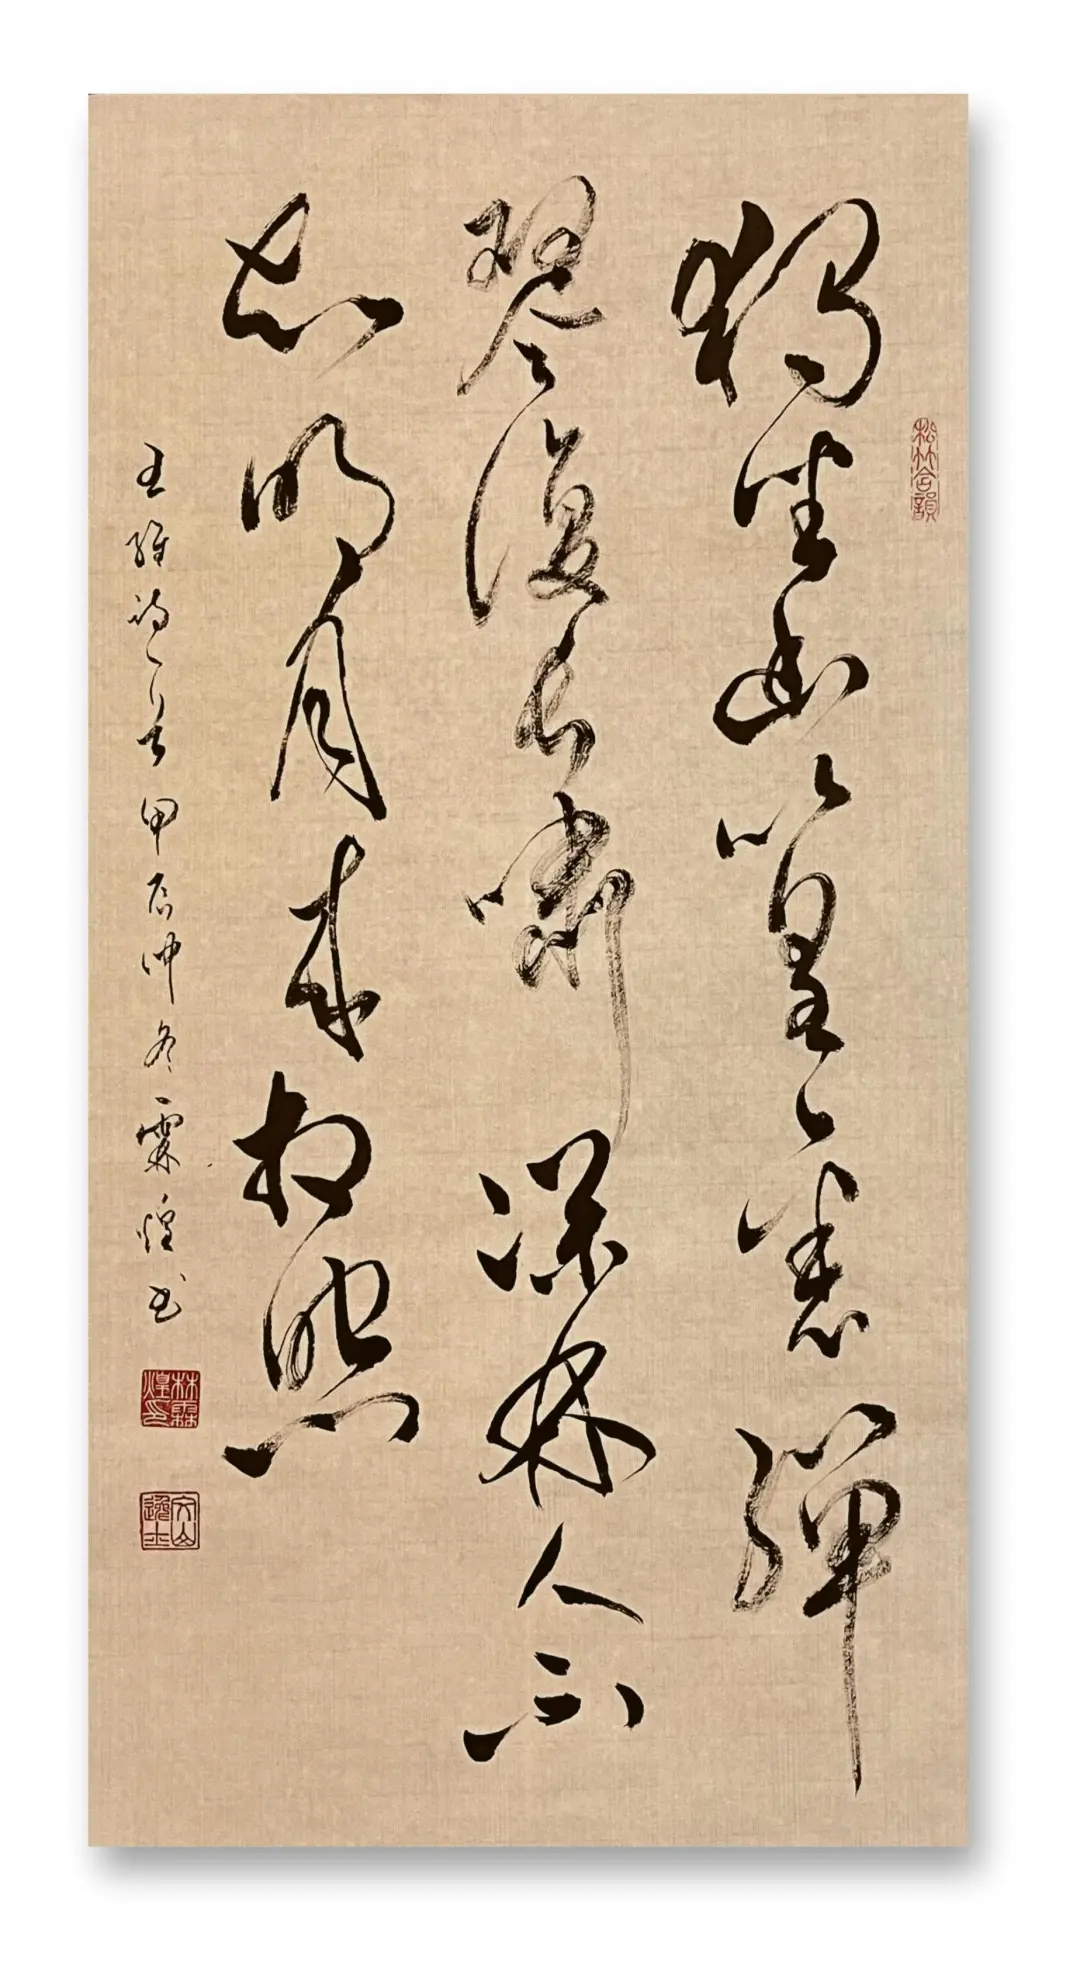 松竹含韻
獨坐幽篁裏彈
琴復長嘯深林人不
知明月來相照
王維詩一首甲辰仲冬霖煌书
林霖煌印
文山逸士